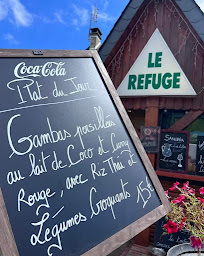 Coca-Cola
Plat du Jour
Gambas persillées
au lait de Coco et Curry
Rouge, avec Riz Thaï et
Légumes Croquants
15€
LE
REFUGE